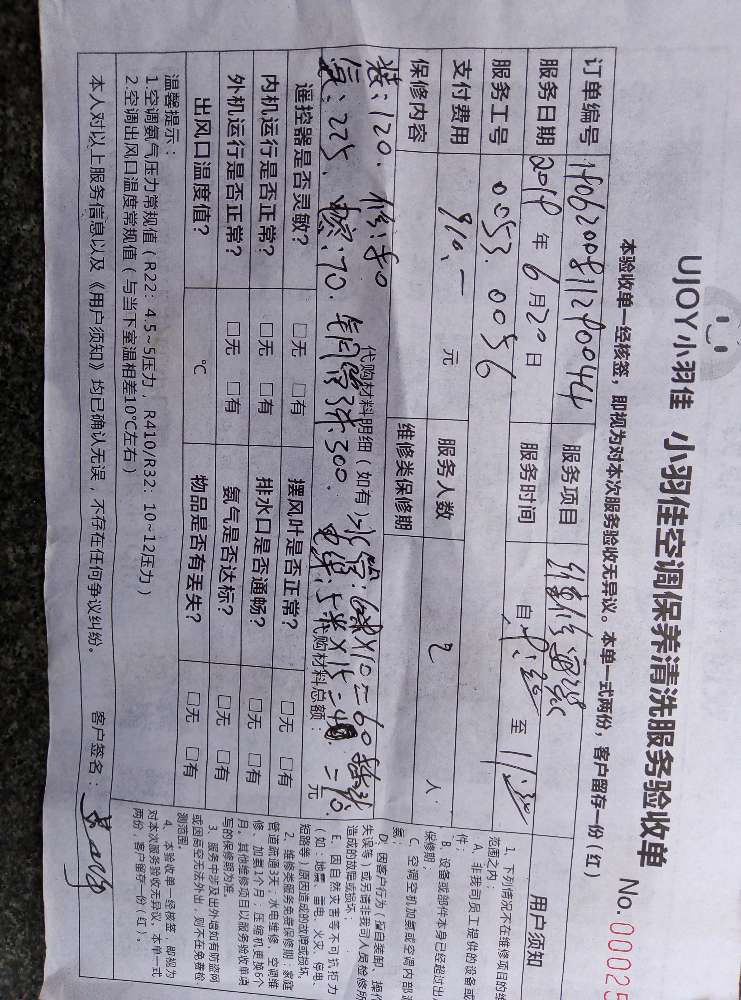 UJOY小羽佳 小羽佳空调保养清洗服务验收单
No. 00025
本验收单一经核签，即视为对本次服务验收无异议。本单一式两份，客户留存一份（红）
订单编号
服务项目
服务日期 2019 年 6 月 20 日
服务时间 自 至 11:30
服务工号 0053. 0056
支付费用 910.- 元
服务人数 2 人
保修内容
维修类保修期
代购材料明细（如有）
装：120.
氟：225.
70.
300.
代购材料总额： 元
遥控器是否灵敏？ □无 □有
摆风叶是否正常？ □无 □有
内机运行是否正常？ □无 □有
排水口是否通畅？ □无 □有
外机运行是否正常？ □无 □有
氨气是否达标？ □无 □有
出风口温度值？ ℃
物品是否有丢失？ □无 □有
温馨提示：
1.空调氨气压力常规值（R22：4.5~5压力，R410/R32：10~12压力）
2.空调出风口温度常规值（与当下室温相差10℃左右）
本人对以上服务信息以及《用户须知》均已确认无误，不存在任何争议纠纷。
客户签名：
用户须知
1、下列情况不在维修项目的
范围之内：
A、非我司员工提供的设备或
件；
B、设备或部件本身已经超过出
保修期；
C、空调空机加氨或空调内部
氨；
D、因客户行为（擅自装卸、操作
失误等）或另请非我司人员检修所
造成的故障或损坏；
E、因自然灾害等不可抗拒力
（如：地震、雷电、火灾、停电、
短路等）原因造成的故障或损坏。
2、维修类服务免费保修期：家庭
管道疏通3天；水电维修、空调维
修、加氨1个月；压缩机更换6个
月。其他维修项目以服务验收单填
写的保修期为准。
3、服务中涉及出外墙如有防盗网
或因高空无法外出，则不在免费检
测范围。
4、本验收单一经核签，即视为
对本次服务验收无异议，本单一式
两份，客户留存一份（红）。